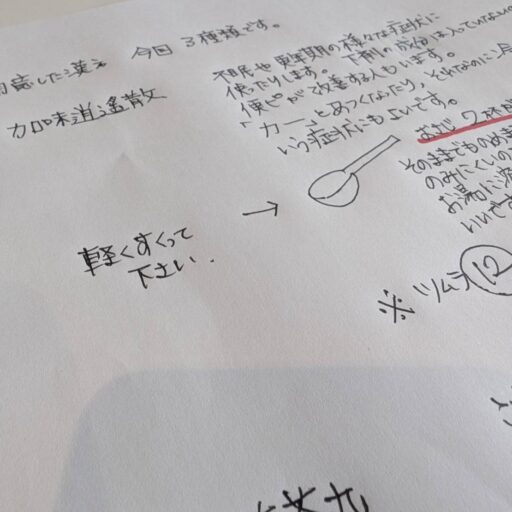 対応した漢方 今回 3種類です。
加味逍遙散
不眠や更年期の様々な症状に
使ったりします。下剤の成分は入っていないのに
便ピが改善する人もいます。
「カーッとあつくなったり、それなのに冷
いう症状にも良いです。
おさじ 2杯
そのままでものめま
のみにくいの
お湯に溶
いいです
→
軽くすくって
下さい.
※ ツムラ 12